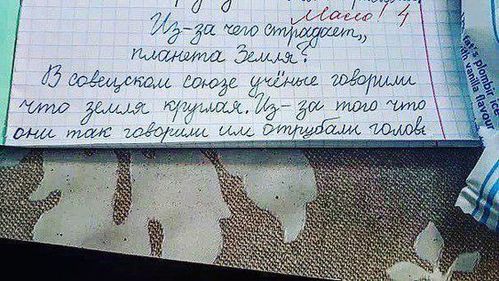 Мало! 4
Из-за чего страдает,,
планета Земля?
В совецском союзе учёные говорили
что земля круглая. Из-за того что
они так говорили им отрубали головы
let's plombir ice
with vanilla flavour